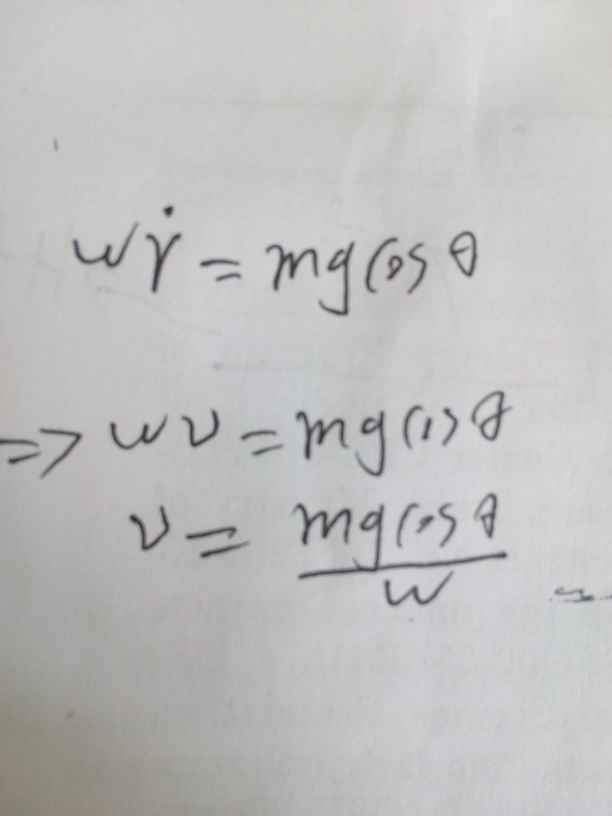 wṙ = mg cos θ
=> wv = mg cos θ
v = mg cos θ / w